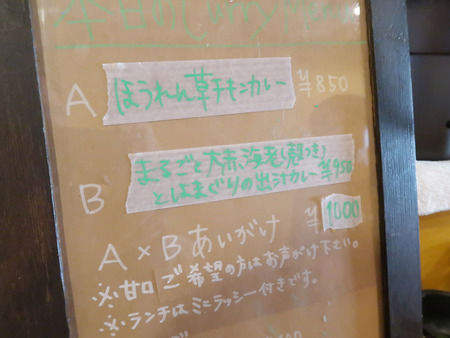 本日のCurry
A ほうれん草チキンカレー ¥850
B まるごと大赤海老(殻つき)
とはまぐりの出汁カレー ¥950
A×Bあいがけ ¥1000
※甘口ご希望の方はお声がけ下さい。
※ランチはミニラッシー付きです。